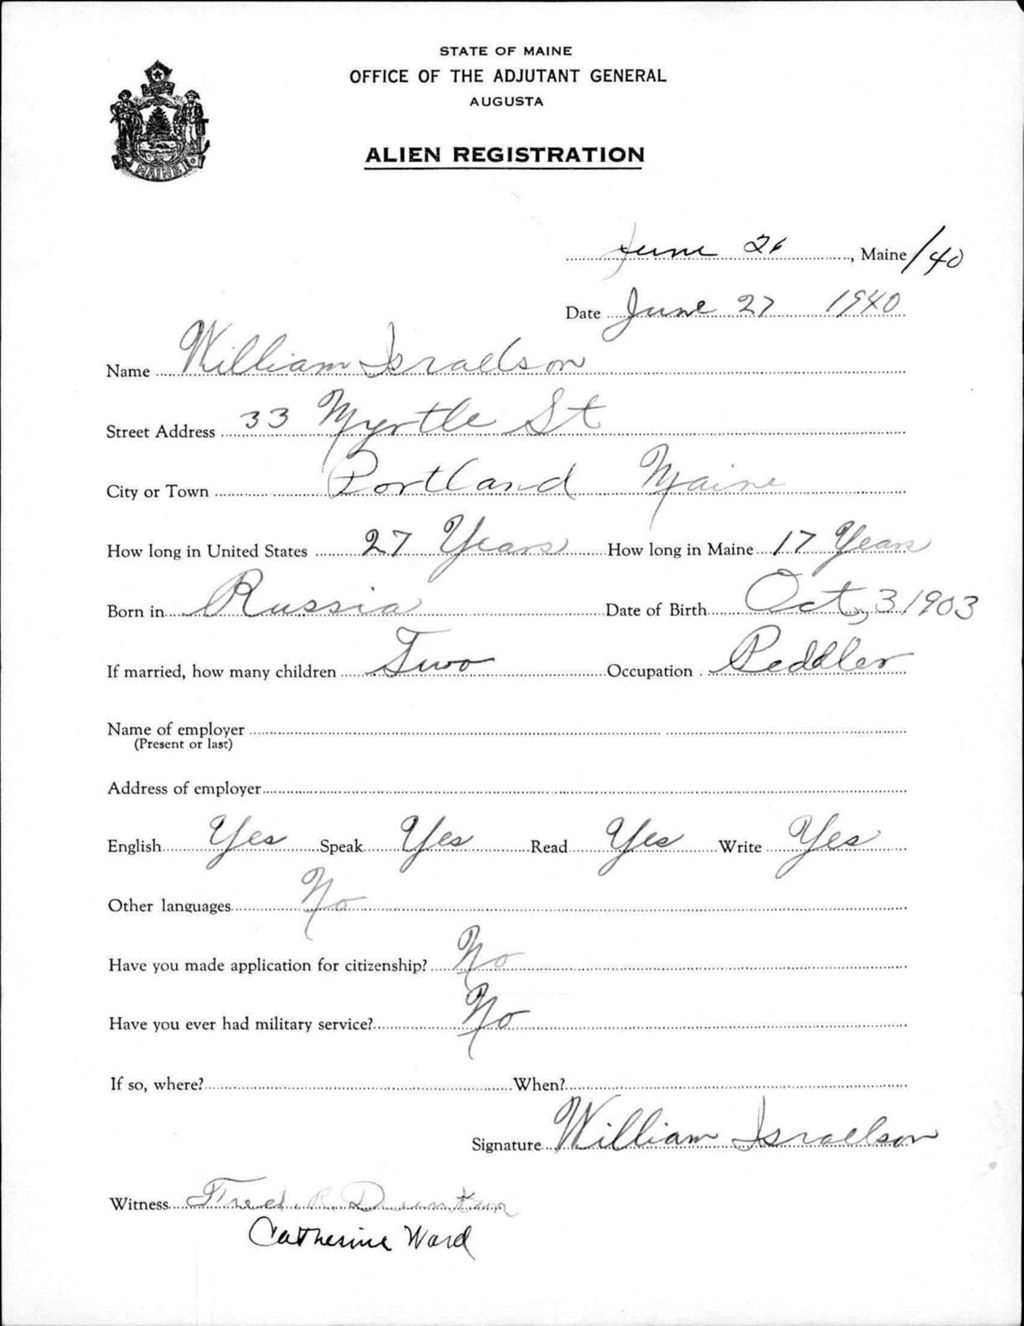 STATE OF MAINE
OFFICE OF THE ADJUTANT GENERAL
AUGUSTA
ALIEN REGISTRATION
MAINE
June 26, Maine /40
Date June 27 1940
Name William Israelson
Street Address 33 Myrtle St
City or Town Portland Maine
How long in United States 27 Years How long in Maine 17 Years
Born in Russia Date of Birth Oct, 3 1903
If married, how many children Two Occupation Peddler
Name of employer
(Present or last)
Address of employer
English Yes Speak Yes Read Yes Write Yes
Other languages No
Have you made application for citizenship? No
Have you ever had military service? No
If so, where? When?
Signature William Israelson
Witness Fred. R.
Catherine Ward